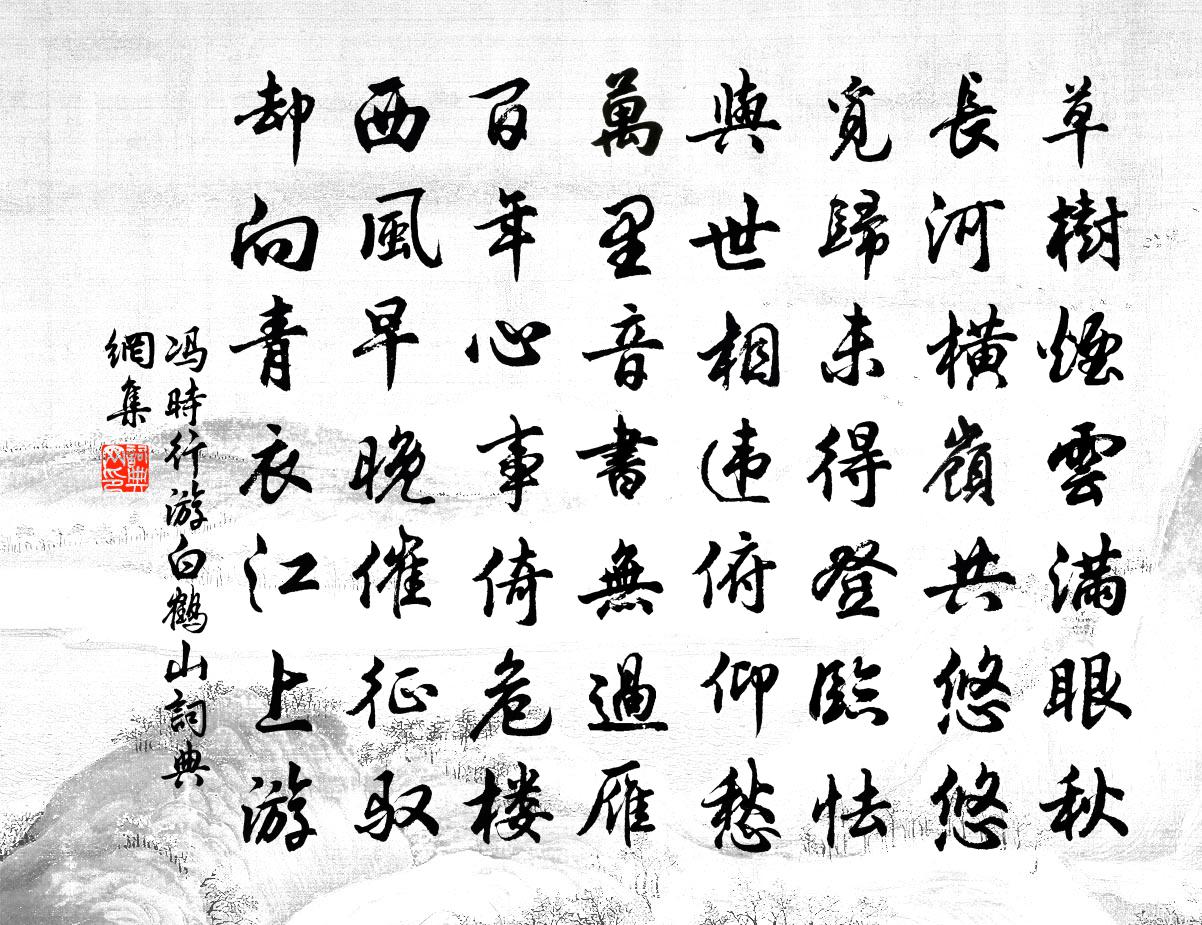 草樹煙雲滿眼秋
長河橫嶺共悠悠
覓歸未得登臨怯
與世相违俯仰愁
萬里音書無過雁
百年心事倚危楼
西風早晚催征驭
却向青衣江上游
冯時行游白鶴山詞典
網集
詞典网印